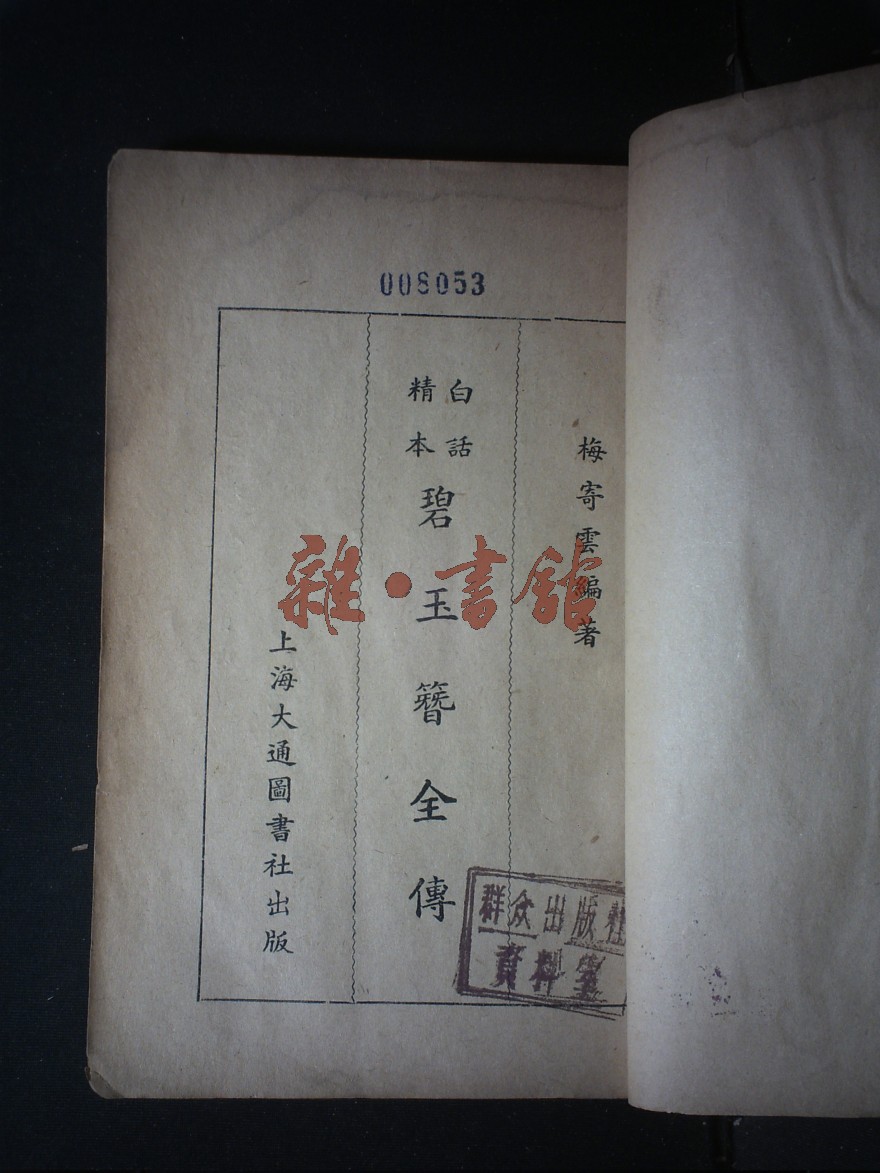 008053
梅寄雲編著
白話
精本
碧玉簪全傳
上海大通圖書社出版
群众出版社
資料室
雜·書館